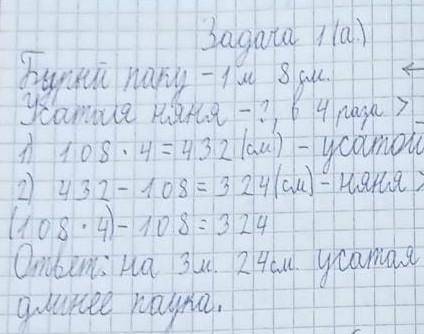 Задача 1(а.)
Бурый паку – 1 м 8 дм.
Усатая няня – ?, в 4 раза >
1) 108 · 4 = 432 (см) – усатой
2) 432 – 108 = 324 (см) – няня >
(108 · 4) – 108 = 324
Ответ: на 3 м. 24 см. усатая
длинее паука.